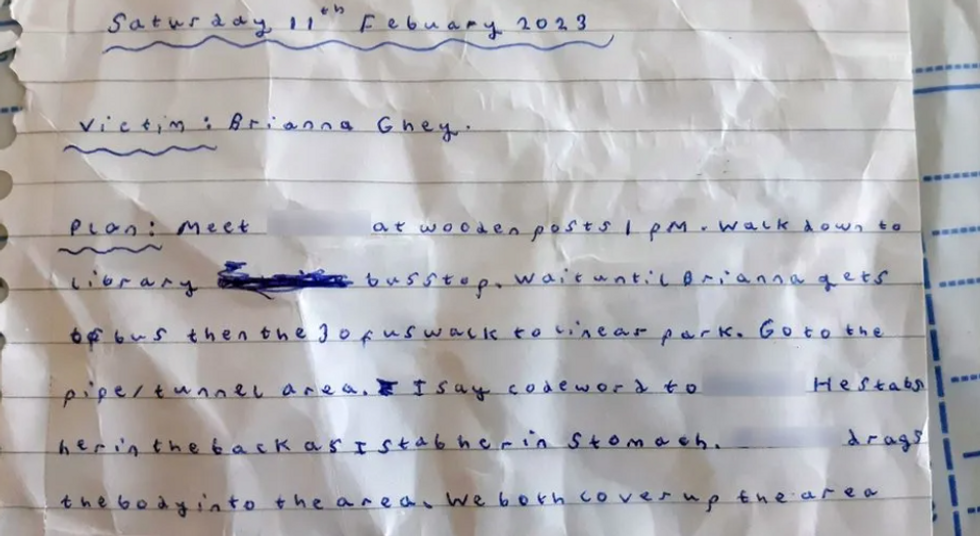 Saturday 11th Febuary 2023
Victim: Brianna Ghey.
Plan: Meet at wooden posts 1 pm. Walk down to
library bus stop. Wait until Brianna gets
of bus then the 3 of us walk to linear park. Go to the
pipe/tunnel area. I say codeword to He stabs
her in the back as I stab her in stomach. drags
the body into the area. We both cover up the area